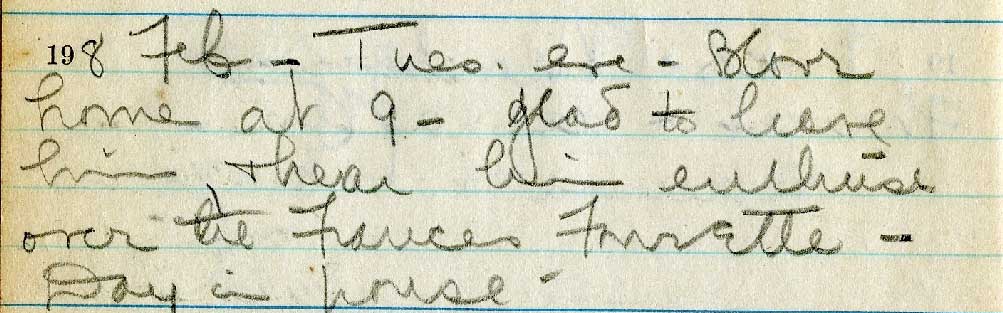 198 Feb - Tues. eve -
home at 9 - glad to have
him, & hear him enthuse
over the Frances
Day in house -